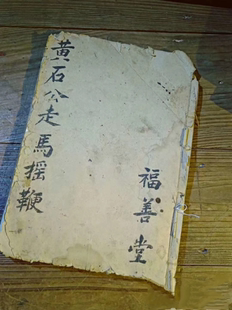 黄石公走馬揺鞭
福善堂